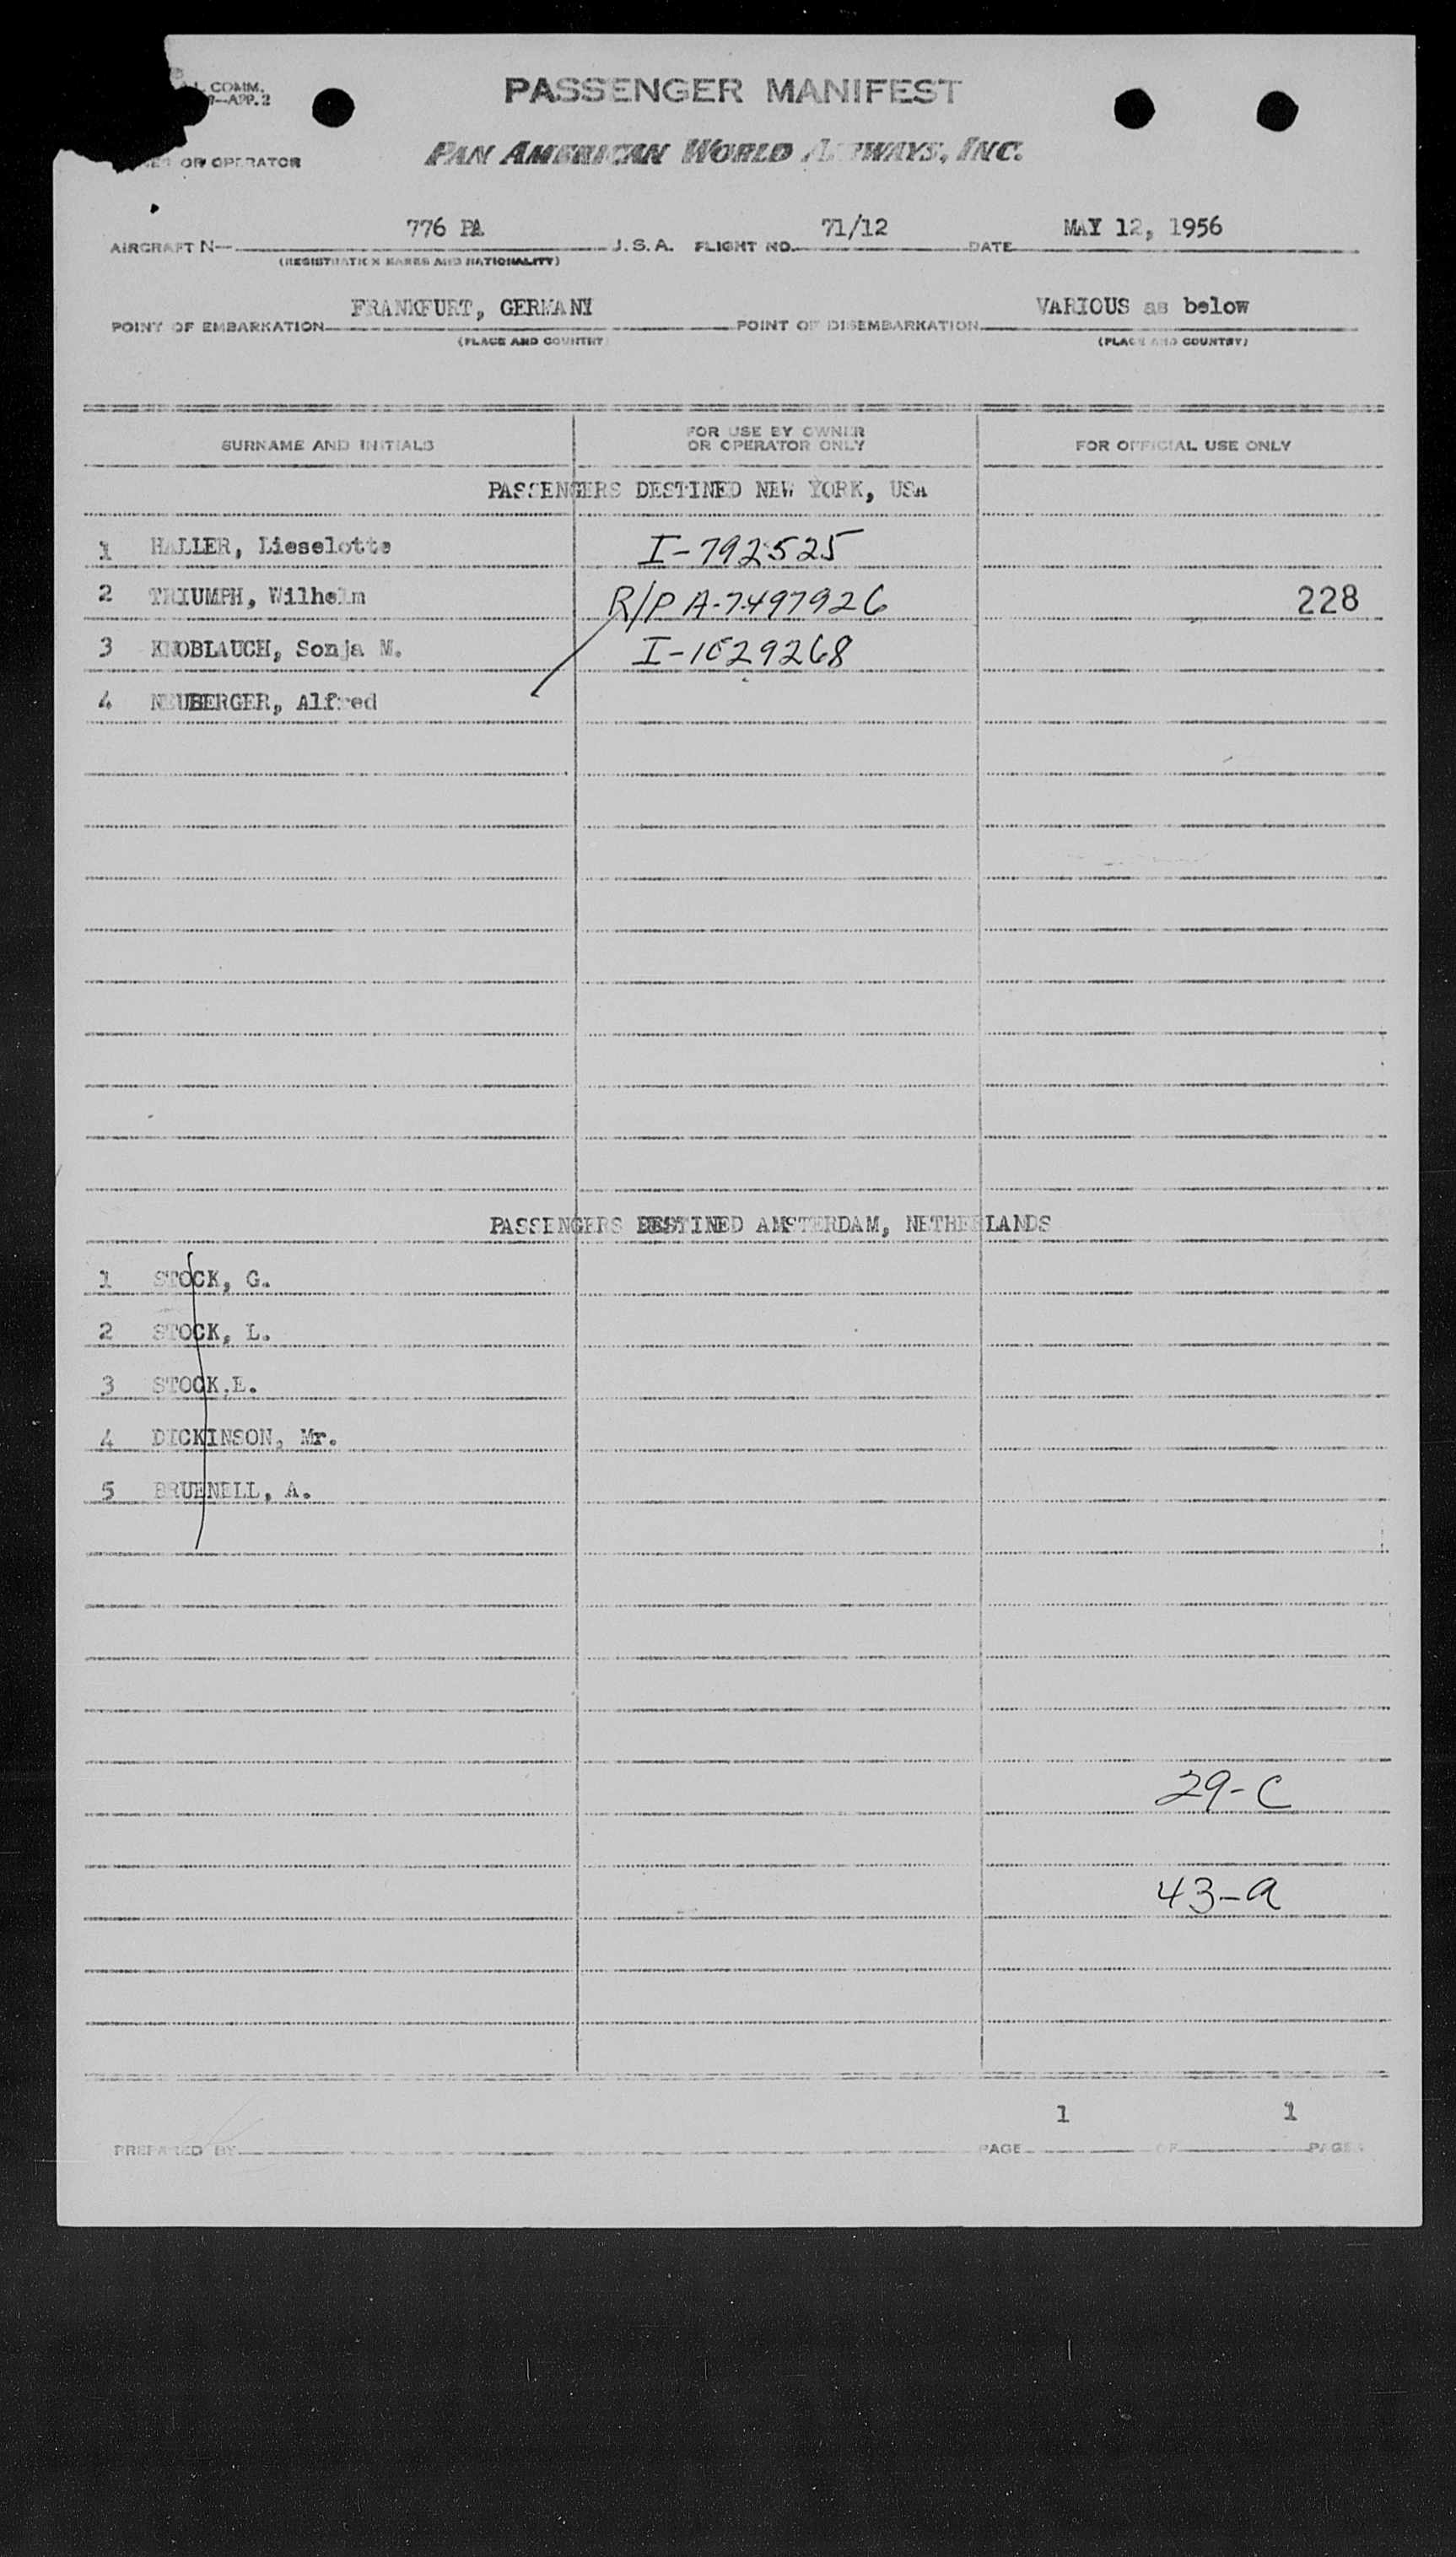 COMM.
—APP. 2
PASSENGER MANIFEST
OR OPERATOR
PAN AMERICAN WORLD AIRWAYS, INC.
AIRCRAFT N— 776 PA U.S.A. FLIGHT NO. 71/12 DATE MAY 12, 1956
(REGISTRATION MARKS AND NATIONALITY)
POINT OF EMBARKATION FRANKFURT, GERMANY POINT OF DISEMBARKATION VARIOUS as below
(PLACE AND COUNTRY) (PLACE AND COUNTRY)
SURNAME AND INITIALS FOR USE BY OWNER OR OPERATOR ONLY FOR OFFICIAL USE ONLY
PASSENGERS DESTINED NEW YORK, USA
1 HALLER, Lieselotte I-792525
2 TRIUMPH, Wilhelm R/P A-7497926 228
3 KNOBLAUCH, Sonja M. I-1029268
4 NEUBERGER, Alfred
PASSENGERS DESTINED AMSTERDAM, NETHERLANDS
1 STOCK, G.
2 STOCK, L.
3 STOCK,E.
4 DICKINSON, Mr.
5 BRUENELL, A.
29-C
43-A
PREPARED BY PAGE 1 OF 1 PAGES